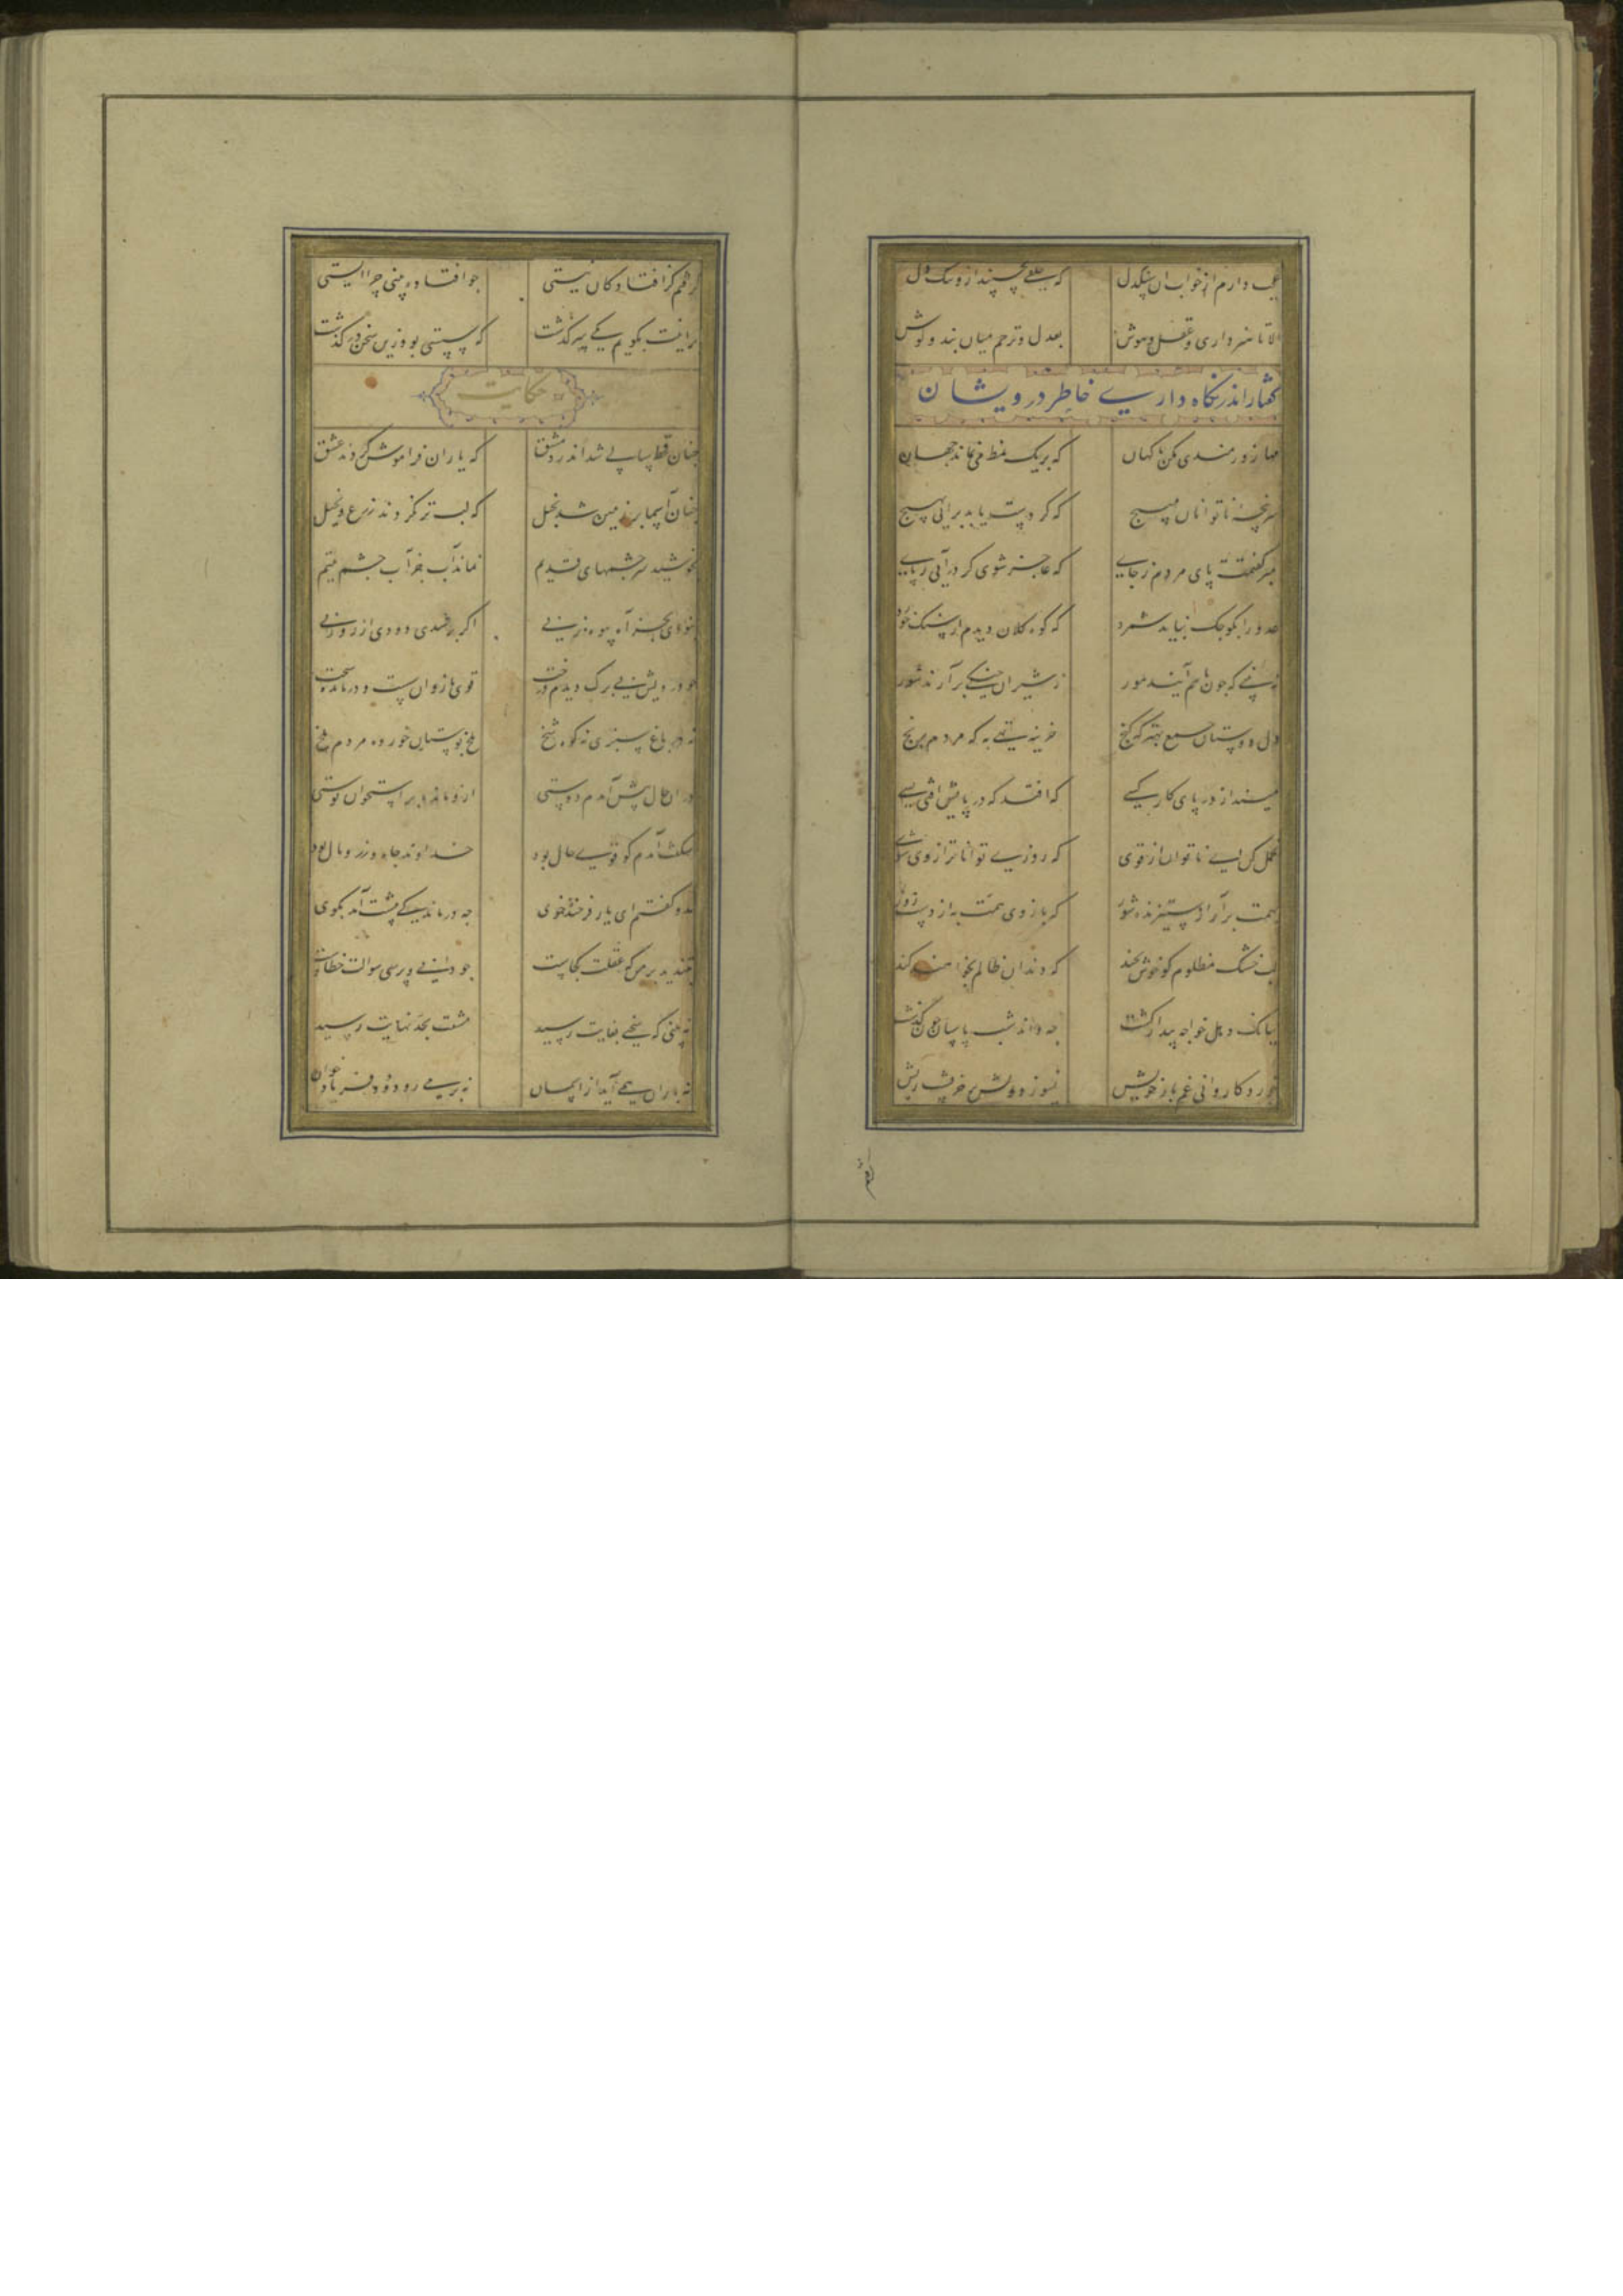 عجب دارم از خواب آن سنگدل که خلقی بخسپند ازو تنگ دل
الا تا هنر داری و عقل و هوش بعدل و ترحم میان بند و کوش
گفتار اندر نگاه داریی خاطر درویشان
مها زورمندی مکن با کهان که بر یک نمط می نماند جهان
سرپنجه ناتوانان مپیچ که گر دست یابد برایی بهیچ
مبر گفتمت پای مردم ز جای که عاجز شوی گر درآیی ز پای
عدو را بکوچک نباید شمرد که کوه کلان دیدم از سنگ خورد
نه بینی که چون باهم آیند مور ز شیران جنگی برآرند شور
دل دوستان جمع بهتر که گنج خزینه تهی به که مردم برنج
مینداز در پای کار کسی که افتد که در پایش افتی بسی
تحمل کن ای ناتوان از قوی که روزی تواناتر از وی شوی
بهمت برآر از ستیزنده شور که بازوی همت به از دست زور
لب خشک مظلوم کو خوش بخند که دندان ظالم بخواهند کند
ببانک دهل خواجه بیدار گشت چه داند شب پاسبان چون گذشت
خورد کاروانی غم بار خویش نسوزد دلش بر خر پشت ریش
گرفتم
گرفتم کز افتادکان نیستی چو افتاده بینی چرا ایستی
برینت بگویم یکی سرگذشت که سستی بود زین سخن درگذشت
حکایت
چنان قحط سالی شد اندر دمشق که یاران فراموش کردند عشق
چنان آسمان بر زمین شد بخیل که لب تر نکردند زرع و نخیل
بخوشید سرچشمهای قدیم نماند آب جز آب چشم یتیم
نبودی بجز آه بیوه زنی اگر بر شدی دودی از روزنی
چو درویش بی برگ دیدم درخت قوی بازوان سست و درمانده سخت
نه در باغ سبزی نه در کوه شخ ملخ بوستان خورده مردم ملخ
در آن حال پیش آمدم دوستی ازو مانده بر استخوان پوستی
شکفت آمدم کو قوی حال بود خداوند جاه و زر و مال بود
بدو گفتم ای یار فرخنده خوی چه درماندگی پیشت آمد بگوی
بتندید بر من که عقلت کجاست چو دانی و پرسی سوالت خطاست
نه بینی که سختی بغایت رسید مشقت بحد نهایت رسید
نه باران همی آید از آسمان نه بر می رود دود فریاد خوان